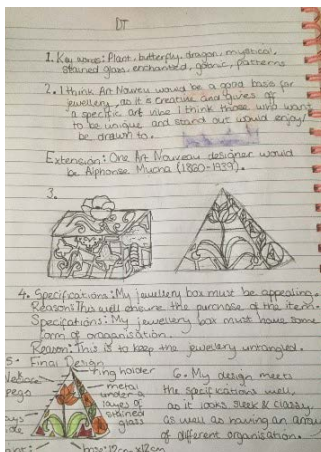 DT
1. Key words: Plant, butterfly, dragon, mystical,
stained glass, enchanted, gothic, patterns
2. I think Art Nouveu would be a good basis for
jewellery, as it is creative and gives off
a specific art vibe I think those who want
to be unique and stand out would enjoy/
be drawn to.
Extension: One Art Nouveau designer would
be Alphonse Mucha (1860-1939).
3.
4. Specifications: My jewellery box must be appealing.
Reason: This will ensure the purchase of the item.
Specifications: My jewellery box must have some
form of oraganisation.
Reason: This is to keep the jewellery untangled.
5. Final Design
ring holder
metal
under a
layer of
stained
glass
6. My design meets
the specifications well
as it looks sleek & classy.
as well as having an
of different organisation.
base: 12cm x 12cm